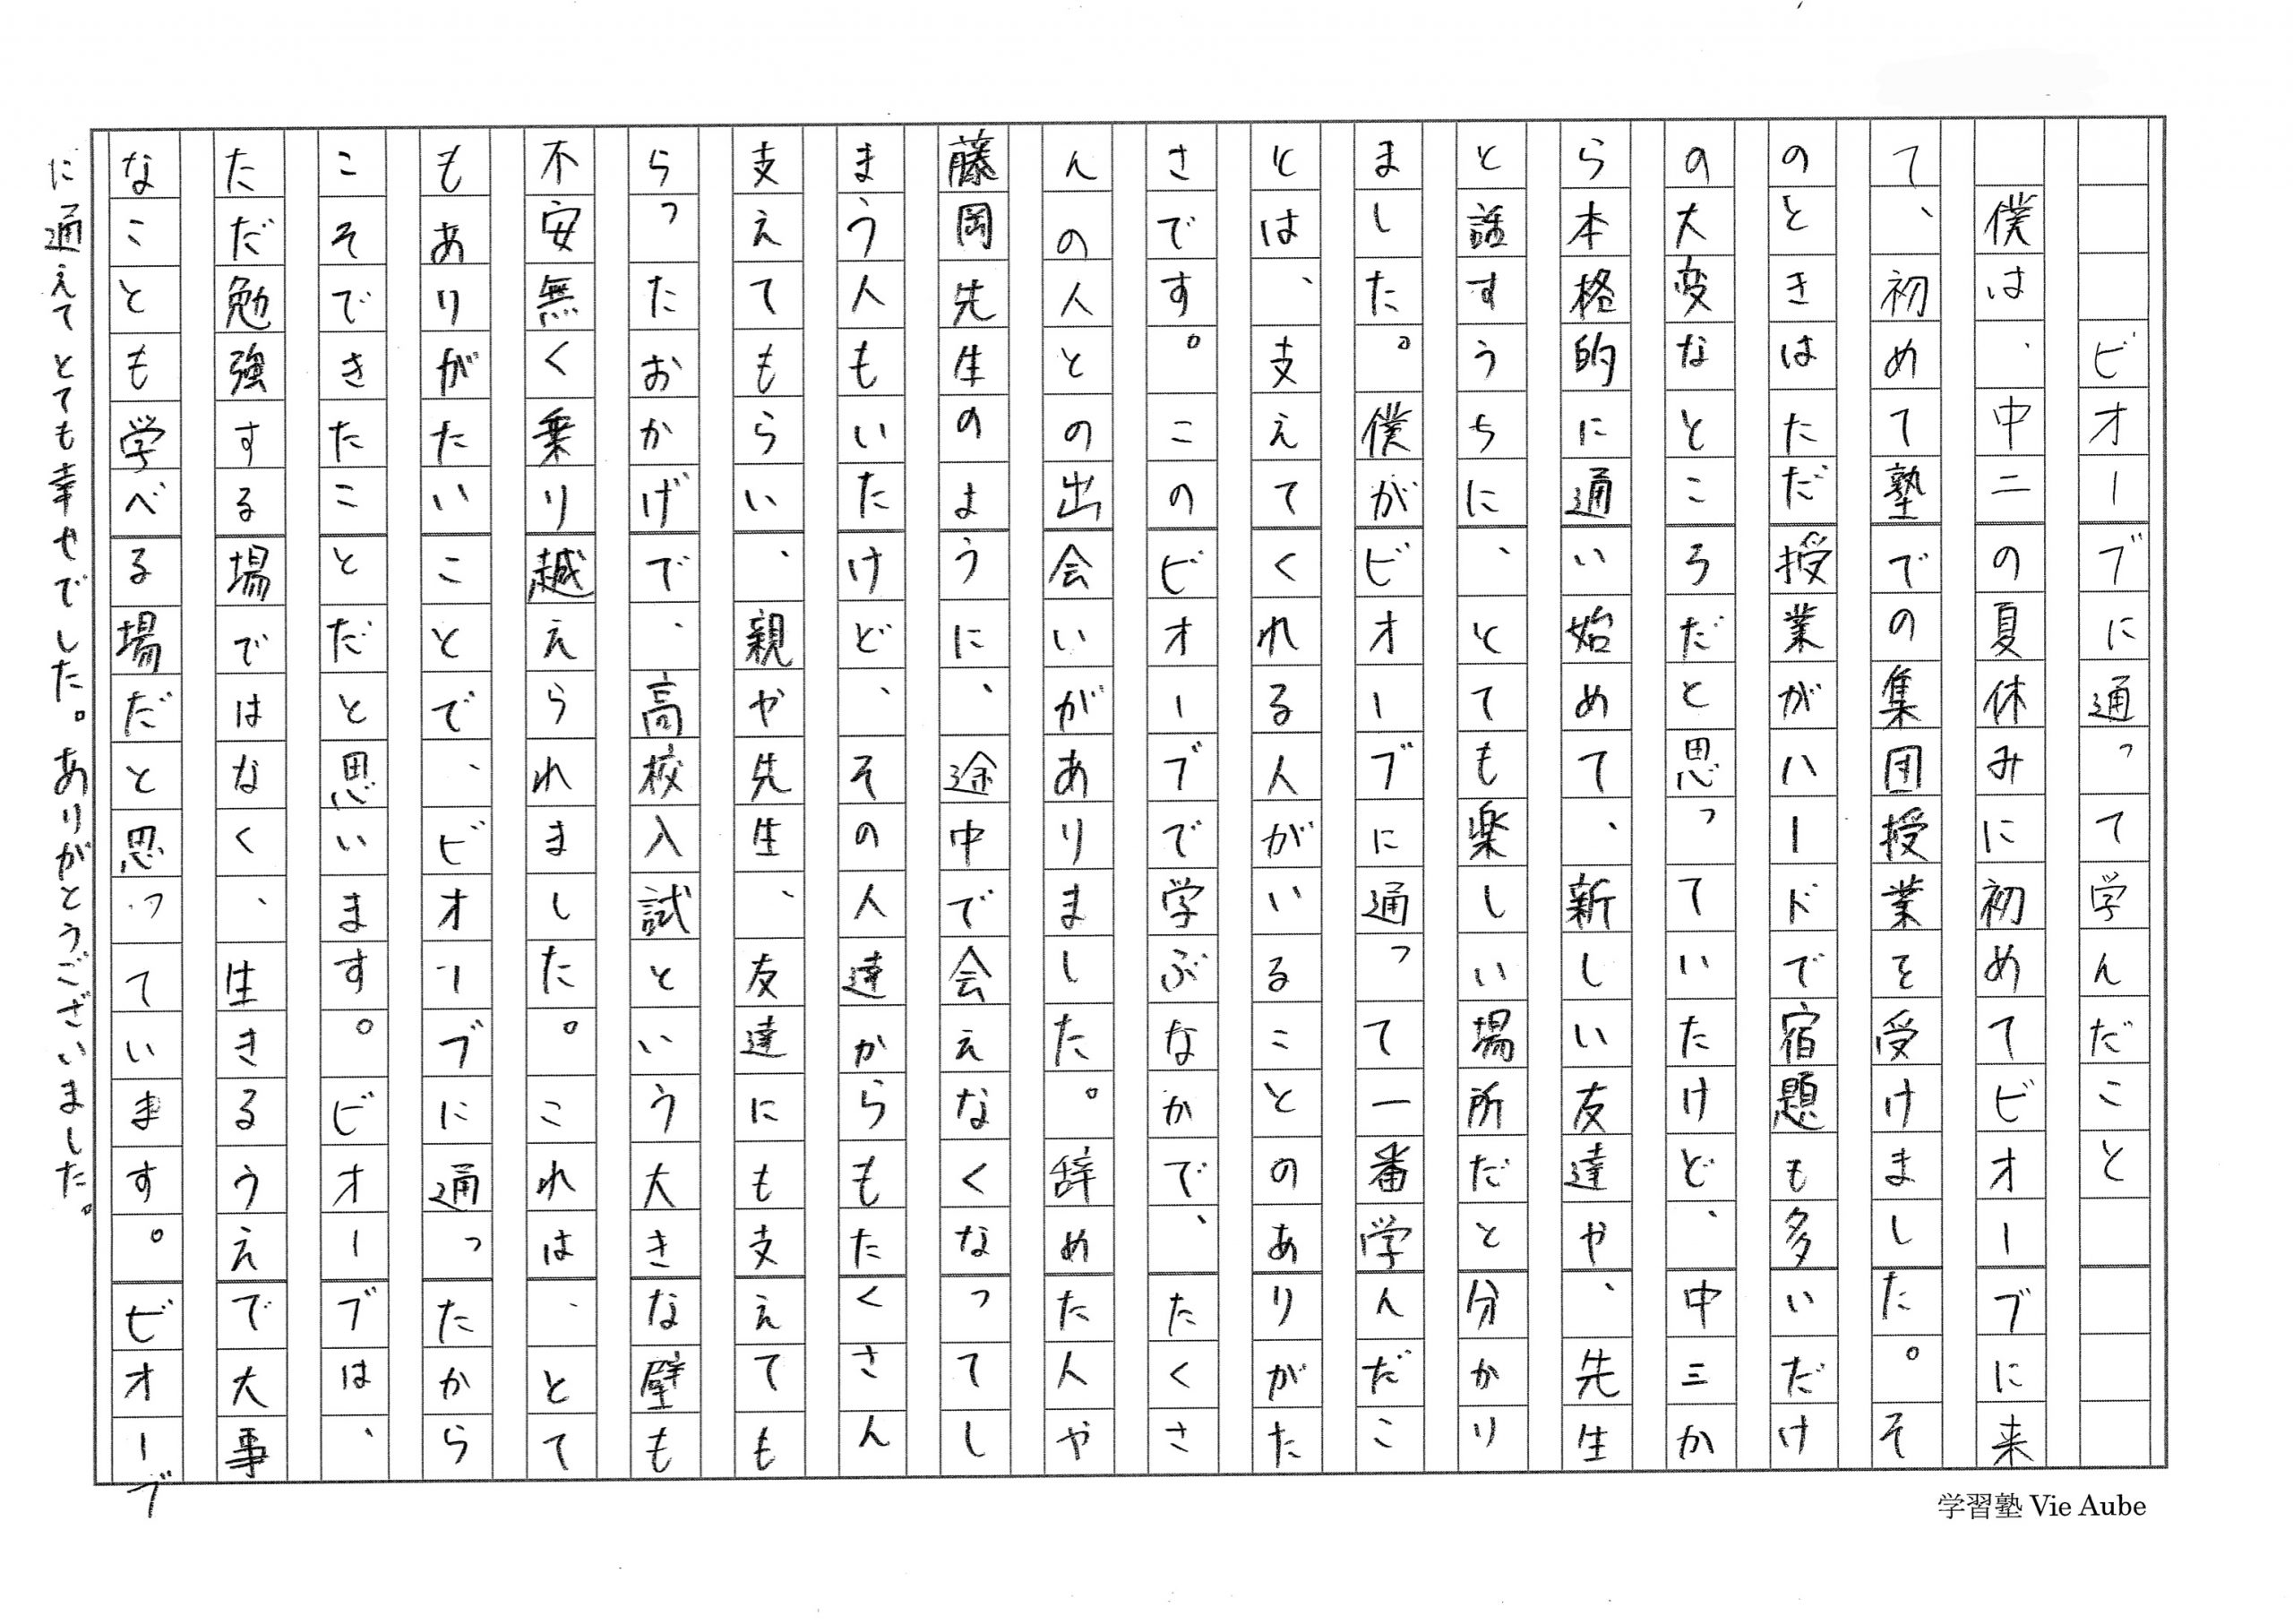 ビオーブに通って学んだこと
僕は、中二の夏休みに初めてビオーブに来
て、初めて塾での集団授業を受けました。そ
のときはただ授業がハードで宿題も多いだけ
の大変なところだと思っていたけど、中三か
ら本格的に通い始めて、新しい友達や、先生
と話すうちに、とても楽しい場所だと分かり
ました。僕がビオーブに通って一番学んだこ
とは、支えてくれる人がいることのありがた
さです。このビオーブで学ぶなかで、たくさ
んの人との出会いがありました。辞めた人や
藤岡先生のように、途中で会えなくなってし
まう人もいたけど、その人達からもたくさん
支えてもらい、親や先生、友達にも支えても
らったおかげで、高校入試という大きな壁も
不安無く乗り越えられました。これは、とて
もありがたいことで、ビオーブに通ったから
こそできたことだと思います。ビオーブは、
ただ勉強する場ではなく、生きるうえで大事
なことも学べる場だと思っています。ビオーブ
に通えてとても幸せでした。ありがとうございました。
学習塾 Vie Aube